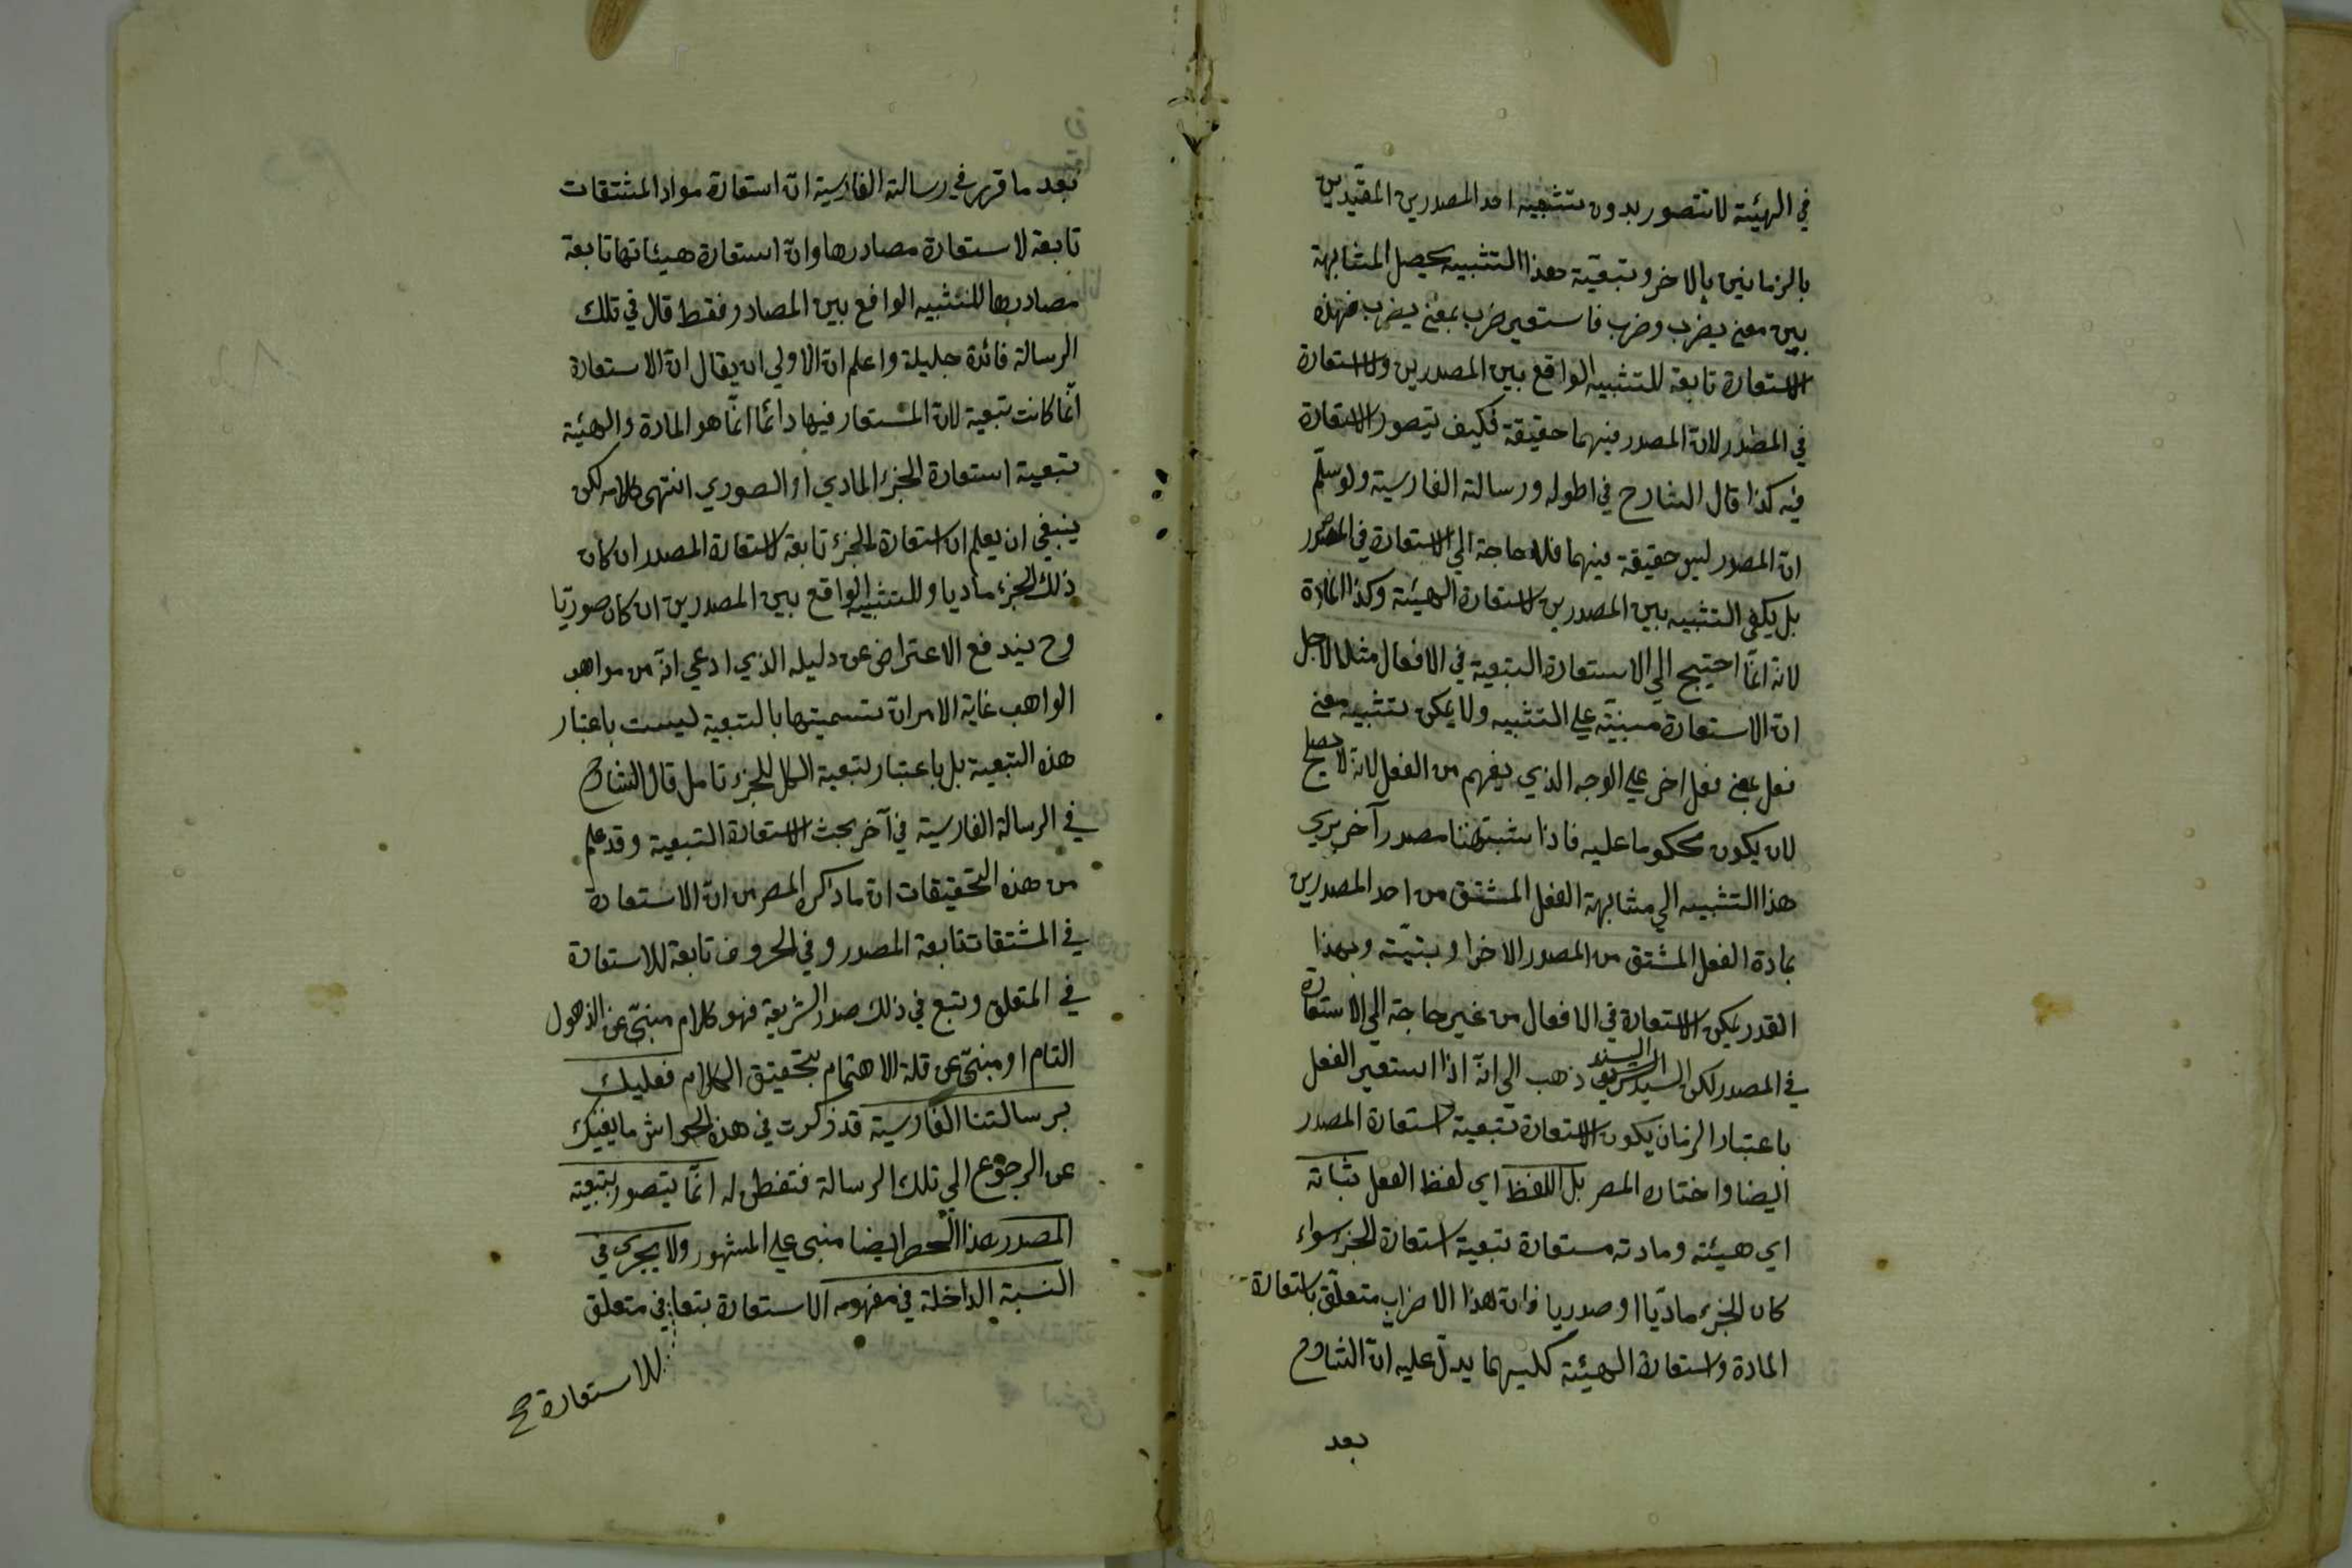 في الهيئة لا تتصور بدون تشبيه احد المصدرين المقيدين
بالزمانين بالاخر وتبعية هذا التشبيه يحصل المشابهة
بين معنى يضرب وضرب فاستعير ضرب بمعنى يضرب فهذه
الاستعارة تابعة للتشبيه الواقع بين المصدرين والاستعارة
في المصدر لان المصدر فيهما حقيقة فكيف يتصور الاستعارة
فيه كذا قال الشارح في اطوله ورسالته الفارسية ولو سلم
ان المصدر ليس حقيقة فيهما فلا حاجة الي الاستعارة في المصدر
بل يكفي التشبيه بين المصدرين لاستعارة الهيئة وكذا المادة
لانه انما احتيج الي الاستعارة التبعية في الافعال مثلا لاجل
ان الاستعارة مبنية علي التشبيه ولا يمكن تشبيه معنى
فعل بمعنى فعل اخر علي الوجه الذي يفهم من الفعل لانه لا يصلح
لان يكون محكوما عليه فاذا شبه هنا مصدر آخر يسري
هذا التشبيه الي مشابهة الفعل المشتق من احد المصدرين
بمادة الفعل المشتق من المصدر الاخر او بنيته وبهذا
القدر يمكن الاستعارة في الافعال من غير حاجة الي الاستعارة
في المصدر لكن السيد السند الشريف ذهب الي انه اذا استعير الفعل
باعتبار الزمان يكون الاستعارة تبعية لاستعارة المصدر
ايضا واختاره المصر بل اللفظ اي لفظ الفعل بتمامه
اي هيئته ومادته مستعارة تبعية استعارة الجزء سواء
كان الجزء ماديا او صدريا فان هذا الاضراب متعلق باستعارة
المادة واستعارة الهيئة كليهما يدل عليه ان الشارح
بعد
بعد ما قرر في رسالته الفارسية ان استعارة مواد المشتقات
تابعة لاستعارة مصادرها وان استعارة هيئاتها تابعة
مصادرها للتشبيه الواقع بين المصادر فقط قال في تلك
الرسالة فائدة جليلة واعلم ان الاولي ان يقال ان الاستعارة
انما كانت تبعية لان المستعار فيها دائما انما هو المادة والهيئة
تبعية استعارة الجزء المادي او الصوري انتهى كلامه لكن
ينبغي ان يعلم ان استعارة الجزء تابعة لاستعارة المصدر ان كان
ذلك الجزء ماديا وللتشبيه الواقع بين المصدرين ان كان صوريا
وح يندفع الاعتراض عن دليله الذي ادعي انه من مواهب
الواهب غاية الامر ان تسميتها بالتبعية ليست باعتبار
هذه التبعية بل باعتبار تبعية الكل للجزء تامل قال الشارح
في الرسالة الفارسية في آخر بحث الاستعارة التبعية وقد علم
من هذه التحقيقات ان ما ذكره المصر من ان الاستعارة
في المشتقات تابعة المصدر وفي الحروف تابعة للاستعارة
في المتعلق وتبع في ذلك صدر الشريعة فهو كلام منبئ عن الذهول
التام او منبئ عن قلة الاهتمام بتحقيق الكلام فعليك
برسالتنا الفارسية قد ذكرت في هذه الحواشي ما يغنيك
عن الرجوع الي تلك الرسالة فتفطن له انما يتصور بتبعية
المصدر هذا الحصر ايضا مبني علي المشهور ولا يجري في
النسبة الداخلة في مفهومه الاستعارة بتعا في متعلق
للاستعارة صح